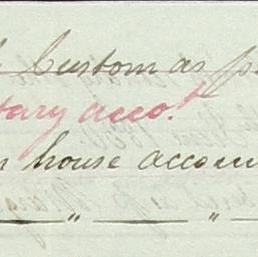 Custom as p
tary acco.t
house accoun
" "